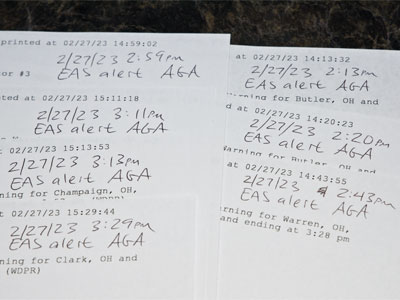 printed at 02/27/23 14:59:02
2/27/23 2:59pm
tor #3 EAS alert AGA
ted at 02/27/23 15:11:18
2/27/23 3:11pm
EAS alert AGA
at 02/27/23 15:13:53
2/27/23 3:13pm
EAS alert AGA
ning for Champaign, OH,
at 02/27/23 15:29:44
2/27/23 3:29pm
EAS alert AGA
ning for Clark, OH and
(WDPR)
at 02/27/23 14:13:32
2/27/23 2:13pm
EAS alert AGA
Warning for Butler, OH and
d at 02/27/23 14:20:23
2/27/23 2:20pm
EAS alert AGA
Warning for Butler, OH and
at 02/27/23 14:43:55
2/27/23 2:43pm
EAS alert AGA
rning for Warren, OH,
and ending at 3:28 pm